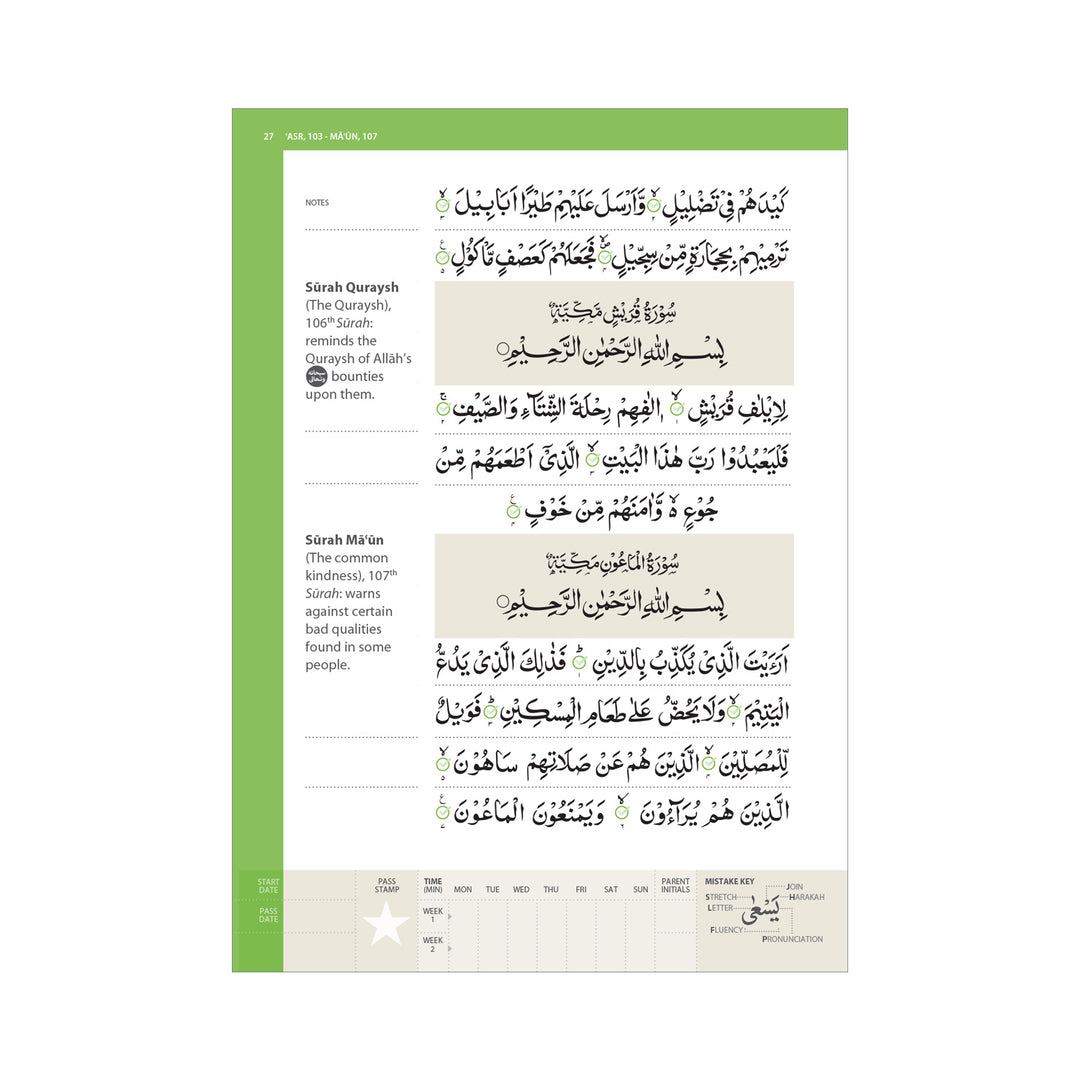 27 'ASR, 103 - MĀ'ŪN, 107
NOTES
كَيْدَهُمْ فِيْ تَضْلِيْلٍ ۙ وَّاَرْسَلَ عَلَيْهِمْ طَيْرًا اَبَابِيْلَ ۙ
تَرْمِيْهِمْ بِحِجَارَةٍ مِّنْ سِجِّيْلٍ ۙ فَجَعَلَهُمْ كَعَصْفٍ مَّاْكُوْلٍ
Sūrah Quraysh
(The Quraysh),
106th Sūrah:
reminds the
Quraysh of Allāh's
سبحانه وتعالى bounties
upon them.
سُوْرَةُ قُرَيْشٍ مَكِّيَّةٌ
بِسْمِ اللهِ الرَّحْمٰنِ الرَّحِيْمِ
لِاِيْلٰفِ قُرَيْشٍ ۙ اٖلٰفِهِمْ رِحْلَةَ الشِّتَآءِ وَالصَّيْفِ ۚ
فَلْيَعْبُدُوْا رَبَّ هٰذَا الْبَيْتِ ۙ الَّذِيْٓ اَطْعَمَهُمْ مِّنْ
جُوْعٍ ۙ وَّاٰمَنَهُمْ مِّنْ خَوْفٍ
Sūrah Mā'ūn
(The common
kindness), 107th
Sūrah: warns
against certain
bad qualities
found in some
people.
سُوْرَةُ الْمَاعُوْنِ مَكِّيَّةٌ
بِسْمِ اللهِ الرَّحْمٰنِ الرَّحِيْمِ
اَرَءَيْتَ الَّذِيْ يُكَذِّبُ بِالدِّيْنِ ؕ فَذٰلِكَ الَّذِيْ يَدُعُّ
الْيَتِيْمَ ۙ وَلَا يَحُضُّ عَلٰى طَعَامِ الْمِسْكِيْنِ ؕ فَوَيْلٌ
لِّلْمُصَلِّيْنَ ۙ الَّذِيْنَ هُمْ عَنْ صَلَاتِهِمْ سَاهُوْنَ ۙ
الَّذِيْنَ هُمْ يُرَآءُوْنَ ۙ وَيَمْنَعُوْنَ الْمَاعُوْنَ
START DATE
PASS DATE
PASS STAMP
TIME (MIN) MON TUE WED THU FRI SAT SUN
WEEK 1
WEEK 2
PARENT INITIALS
MISTAKE KEY
JOIN
STRETCH
HARAKAH
LETTER
يَسْعٰى
FLUENCY
PRONUNCIATION